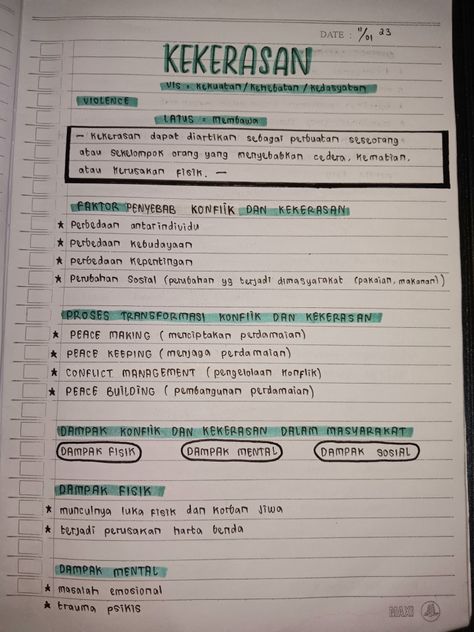 DATE : 11/01 23
KEKERASAN
VIS = Kekuatan / Kehebatan / Kedasyatan
VIOLENCE
LATUS = Membawa
- Kekerasan dapat diartikan sebagai perbuatan seseorang
atau sekelompok orang yang menyebabkan cedera, kematian,
atau kerusakan fisik. -
FAKTOR PENYEBAB KONFLIK DAN KEKERASAN
★ Perbedaan antarindividu
★ Perbedaan Kebudayaan
★ Perbedaan Kepentingan
★ Perubahan Sosial (perubahan yg terjadi dimasyarakat (pakaian, makanan))
PROSES TRANSFORMASI KONFLIK DAN KEKERASAN
★ PEACE MAKING (menciptakan perdamaian)
★ PEACE KEEPING (menjaga perdamaian)
★ CONFLICT MANAGEMENT (pengelolaan konflik)
★ PEACE BUILDING (pembangunan perdamaian)
DAMPAK KONFLIK DAN KEKERASAN DALAM MASYARAKAT
DAMPAK FISIK DAMPAK MENTAL DAMPAK SOSIAL
DAMPAK FISIK
★ munculnya luka fisik dan korban jiwa
★ terjadi perusakan harta benda
DAMPAK MENTAL
★ masalah emosional
★ trauma psikis
MAXI